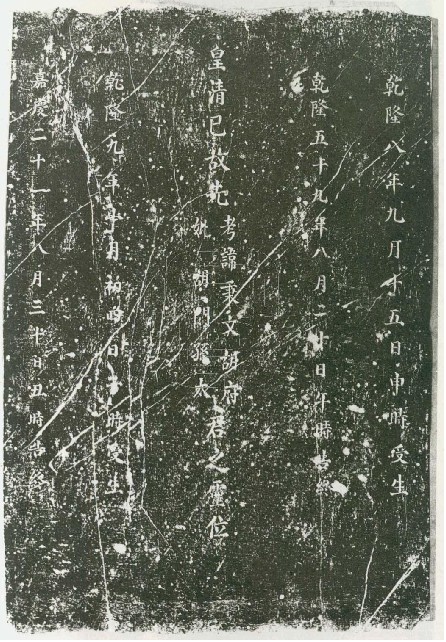 乾隆八年九月十五日申時受生
乾隆五十九年八月二十日午時告終
皇清巳故先考諱秉文胡府君之靈位
妣胡門孫太
乾隆九年十月初四日子時受生
嘉慶二十一年八月三十日丑時告終